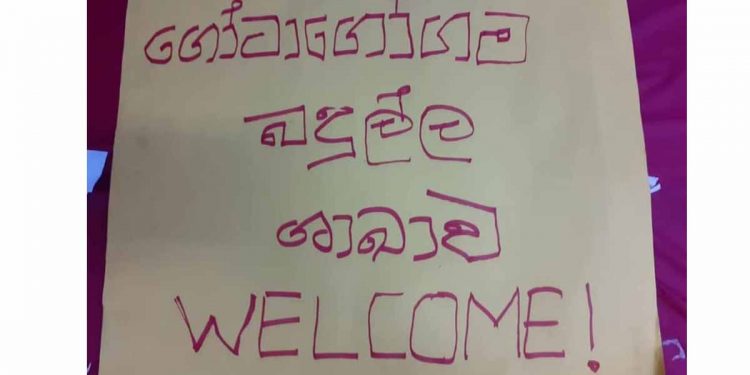 ගෝටාගෝගම
බදුල්ල
ශාඛාව
WELCOME!